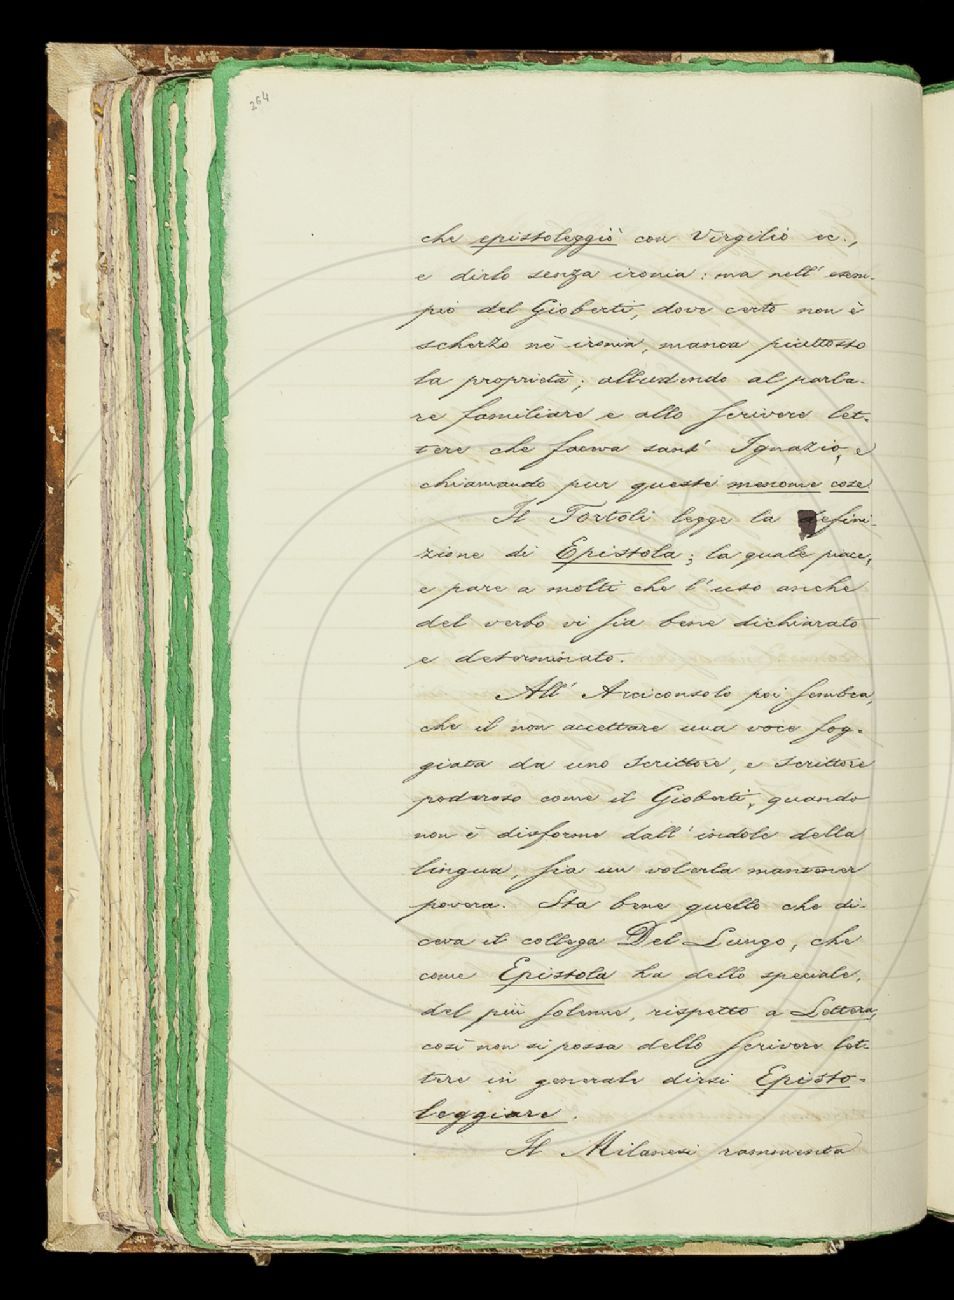 264
che epistoleggiò con Virgilio ec.,
e dirlo senza ironia: ma nell' esem-
pio del Gioberti, dove certo non è
scherzo nè ironia, manca piuttosto
la proprietà; alludendo al parla-
re familiare e allo scrivere let-
tere che faceva sant' Ignazio, e
chiamando pur queste menome cose
Il Tortoli legge la defini-
zione di Epistola; la quale piace,
e pare a molti che l' uso anche
del verbo vi sia bene dichiarato
e determinato.
All' Arciconsolo poi sembra,
che il non accettare una voce fog-
giata da uno scrittore, e scrittore
poderoso come il Gioberti, quando
non è disforme dall' indole della
lingua, sia un volerla mantener
povera. Sta bene quello che di-
ceva il collega Del Lungo, che
come Epistola ha dello speciale,
del più solenne, rispetto a Lettera,
così non si possa dello scrivere let-
tere in generale dirsi Episto-
leggiare.
Il Milanesi rammenta